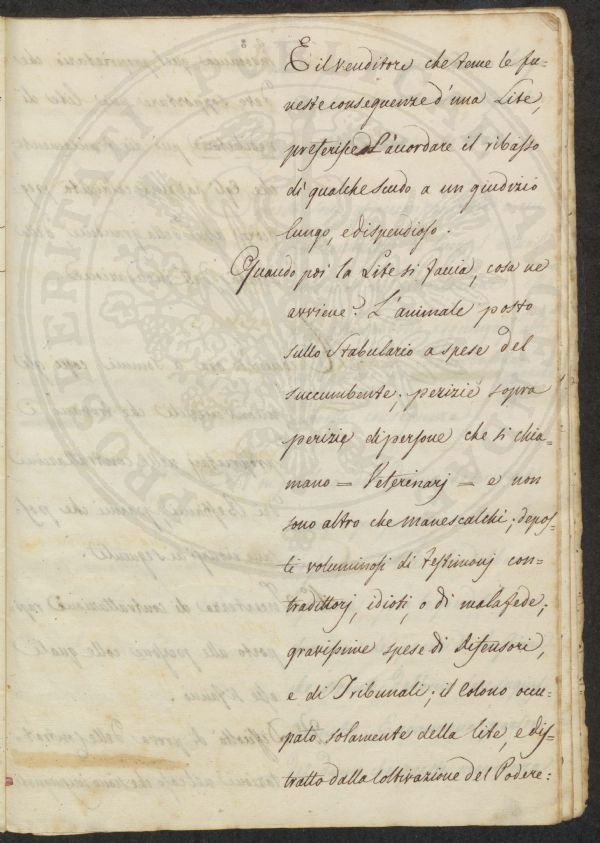 E il venditore che teme le fu-
neste conseguenze d'una Lite,
preferisce L'accordare il ribasso
di qualche scudo a un giudizio
lungo, e dispendioso.
Quando poi la Lite si faccia, cosa ne
avviene? L'animale posto
sullo Stabulario a spese del
succumbente; perizie sopra
perizie di persone che si chia-
mano = Veterinarj = e non
sono altro che maniscalchi; depos-
ti voluminosi di testimonj con-
tradittorj, idioti, o di malafede;
gravissime spese di Difensori,
e di Tribunali; il Colono occu-
pato solamente della lite, e dis-
tratto dalla Coltivazione del Podere: